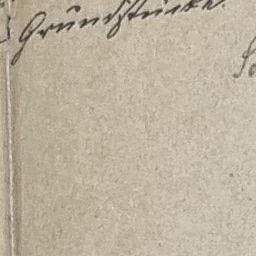 Grundstücke.